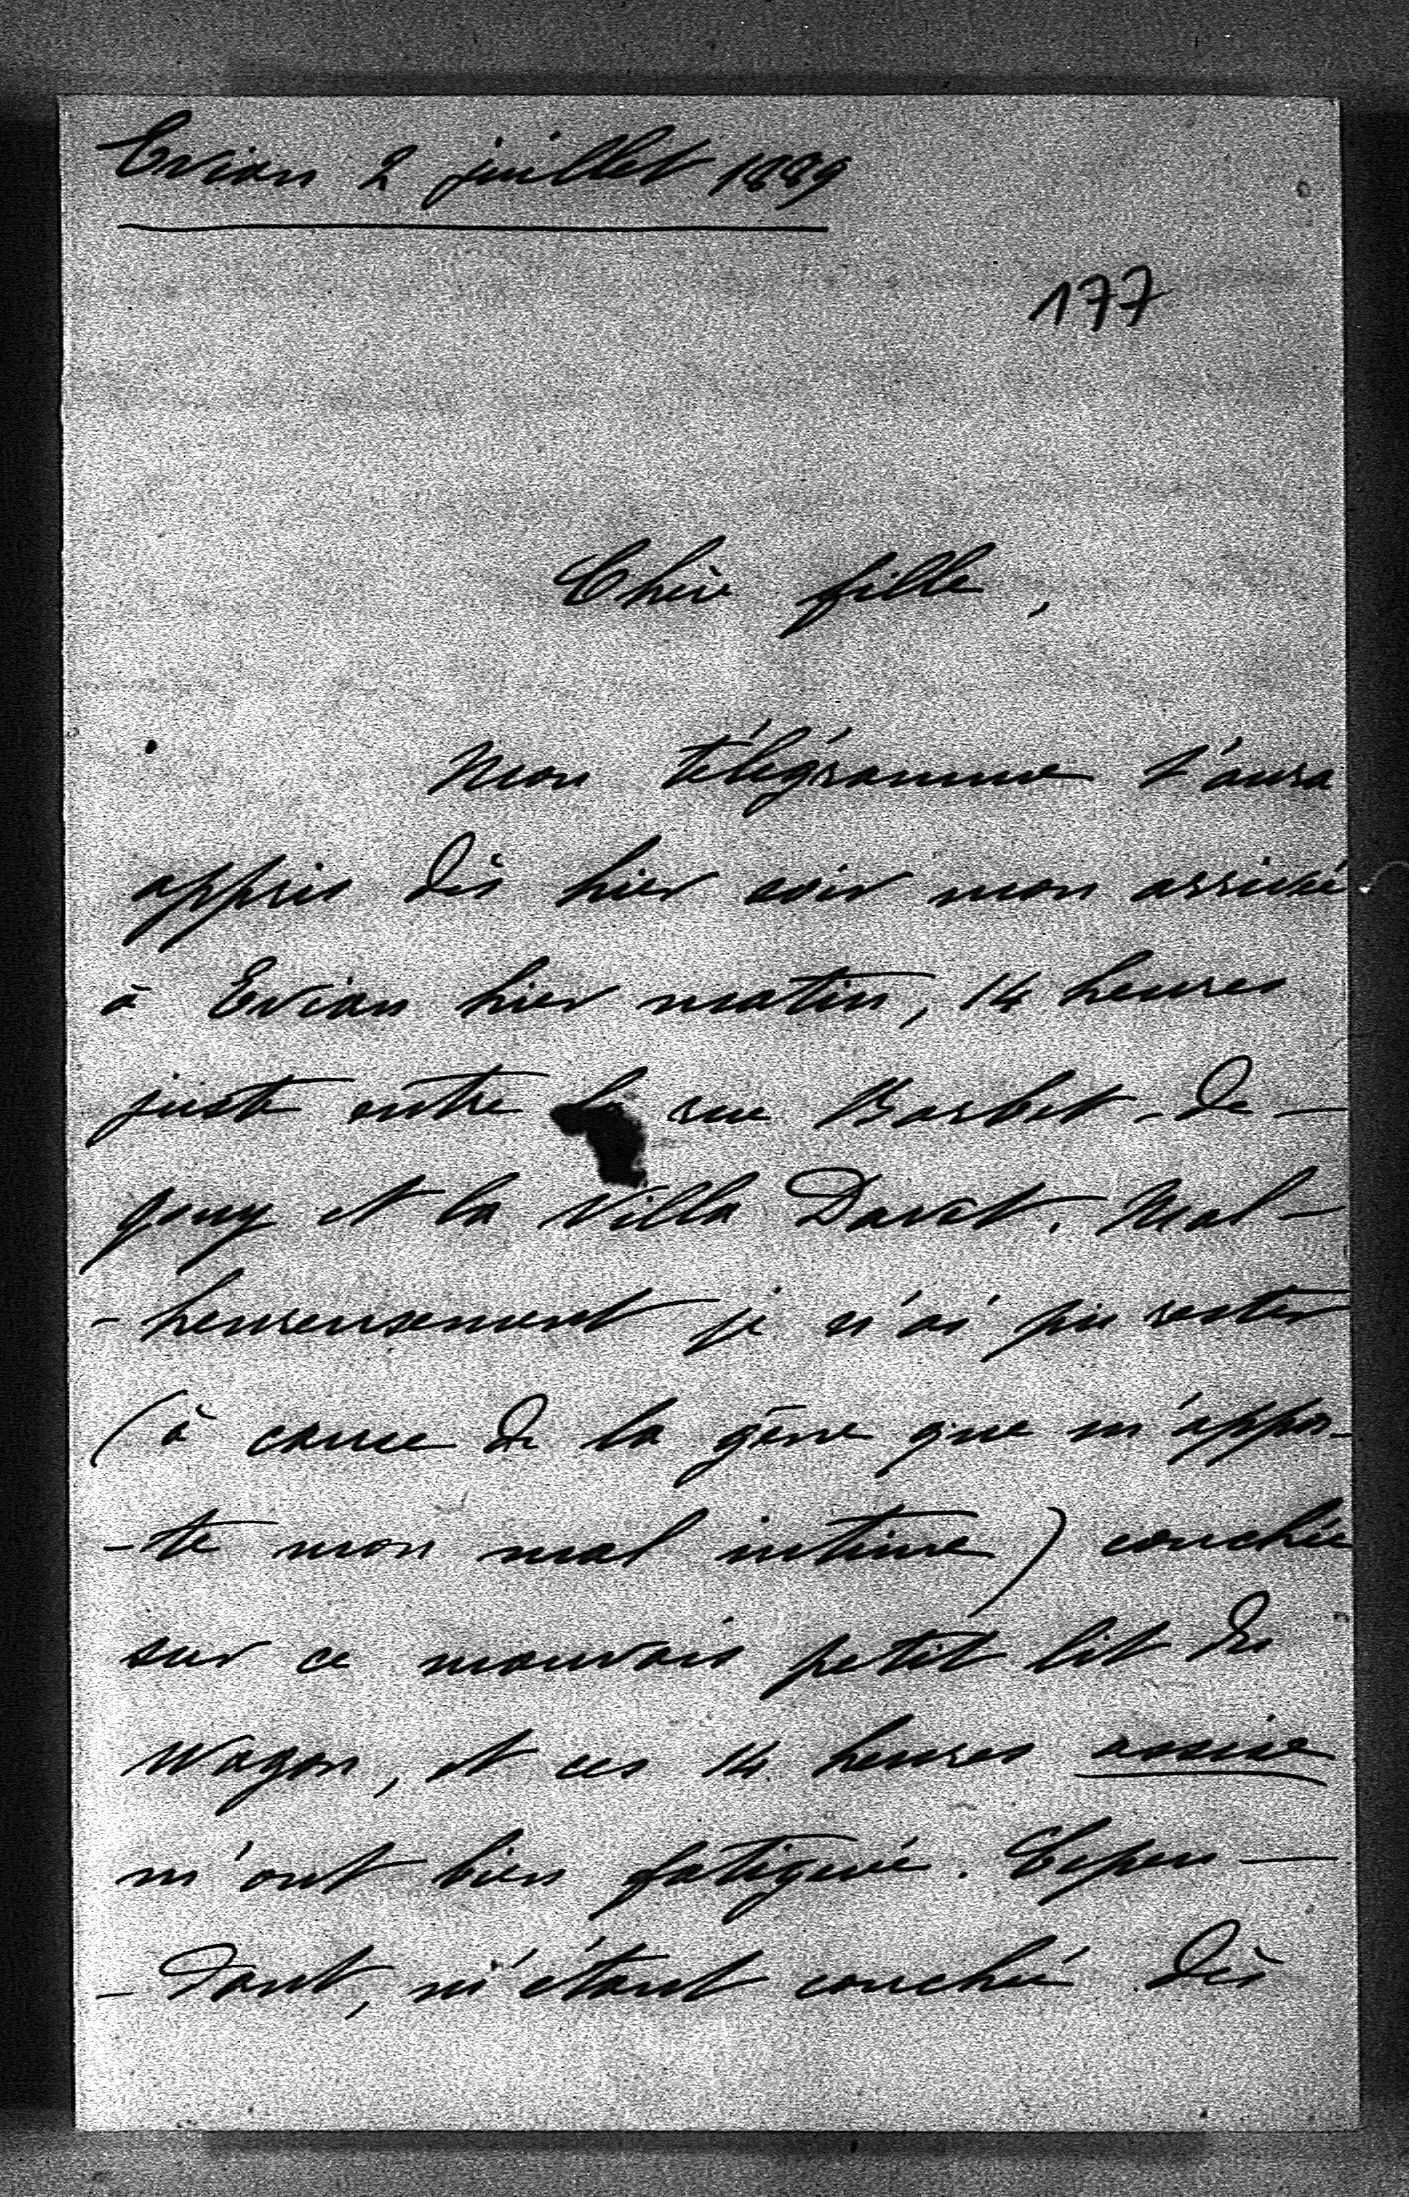 Evian 2 juillet 1889
177
Chère fille,
Mon télégramme t'aura
appris dès hier soir mon arrivée
à Evian hier matin, 14 heures
juste entre la rue Barbet-de-
Jouy et la Villa Davet. Mal-
-heureusement je n'ai pu rester
(à cause de la gêne que m'appor-
-te mon mal intime) couchée
sur ce mauvais petit lit du
Wagon, et ces 14 heures assise
m'ont bien fatiguée. Cepen-
-dant, m'étant couchée dès